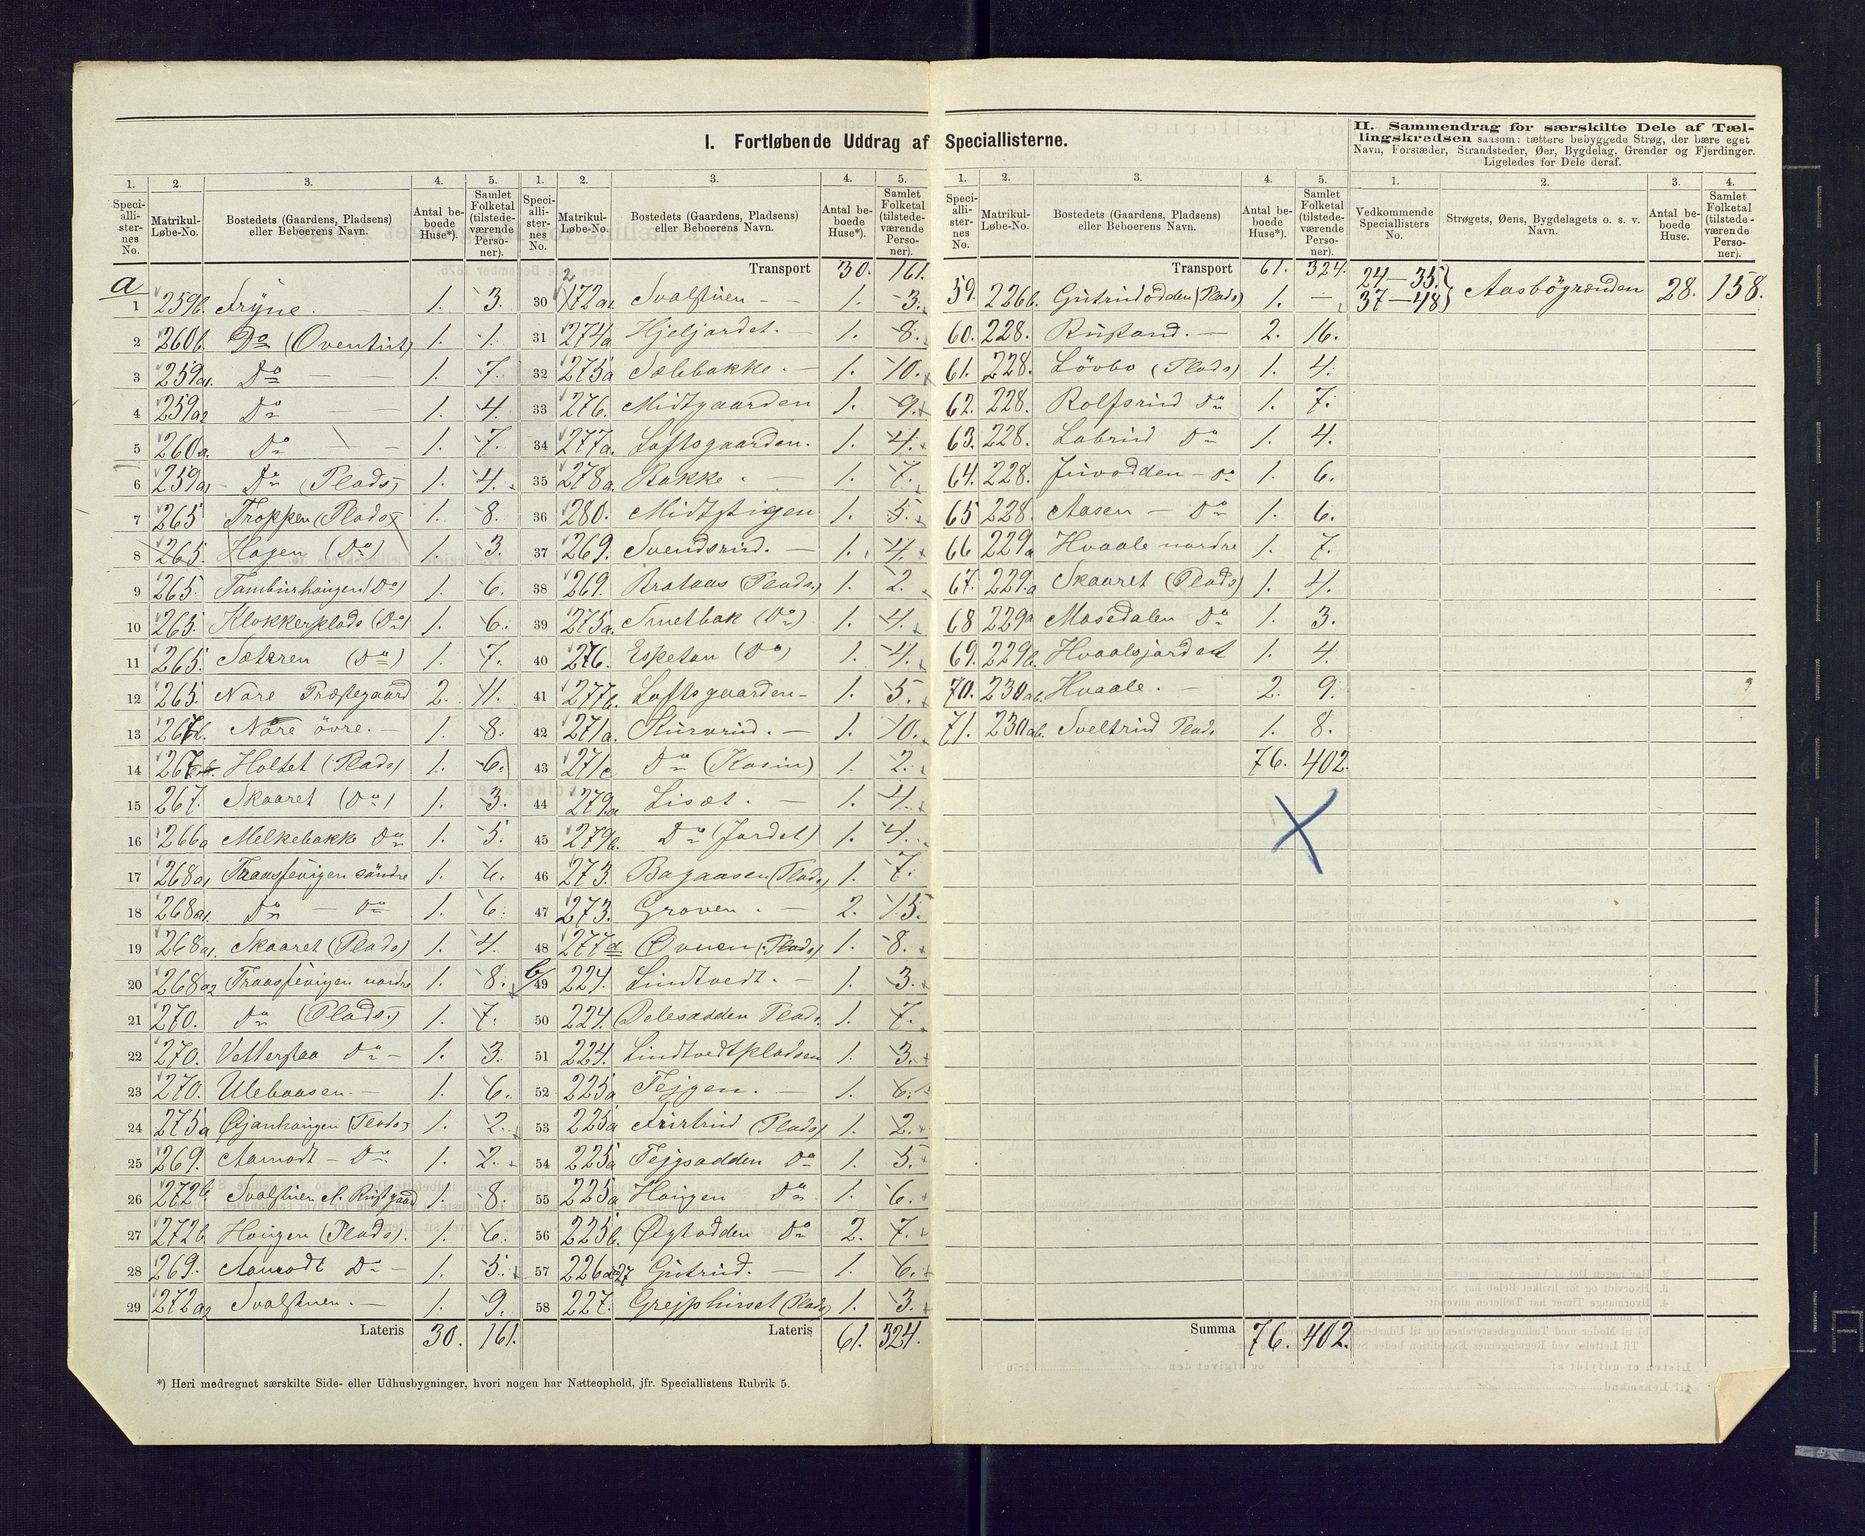 I. Fortløbende Uddrag af Speciallisterne.
II. Sammendrag for særskilte Dele af Tæl-
lingskredsen saasom: tættere bebyggede Strøg, der bære eget
Navn, Forstæder, Strandsteder, Øer, Bygdelag, Grender og Fjerdinger.
Ligeledes for Dele deraf.
1. 2. 3. 4. 5.
Speciallisternes No. Matrikul-Løbe-No. Bostedets (Gaardens, Pladsens) eller Beboerens Navn. Antal beboede Huse*). Samlet Folketal (tilstedeværende Personer).
a
1 259b. Fryne. 1. 3.
2 260b. Do (Oventut) 1. 1.
3 259a1. Do 1. 7.
4 259a2 Do 1. 4.
5 260a. Do 1. 7.
6 259a1 Do (Plads) 1. 4.
7 265 Troppen (Plads) 1. 8.
8 265. Hagen (Do) 1. 3.
9 265. Tamburhaugen (Do) 1. 6.
10 265. Klokkerplads (Do) 1. 6.
11 265. Sæteren (Do) 1. 7.
12 265. Nore Præstegaard 2. 11.
13 267b. Nore øvre. 1. 8.
14 267 Holtet (Plads) 1. 6.
15 267. Skaaret (Do) 1. 3.
16 266a Melkebakke Do 1. 5.
17 268a1 Traasfevigen søndre 1. 6.
18 268a1. Do Do 1. 6.
19 268a1. Skaaret (Plads) 1. 4.
20 268a2 Traasfevigen nordre 1. 8.
21 270. Do (Plads) 1. 7.
22 270. Vetterstaa Do 1. 3.
23 270. Ulebaasen. 1. 6.
24 275a Øijanhaugen (Plads) 1. 2.
25 269. Aamodt Do 1. 2.
26 272b Svalstuen N. Rustgaard 1. 8.
27 272b. Haugen (Plads). 1. 6.
28 269. Aamodt Do 1. 5.
29 272a2 Svalstuen. 1. 9.
Lateris 30. 161.
Transport 30. 161.
30 272a1. Svalstuen 1. 3.
31 274a Hjeljordet. 1. 8.
32 275a Sælebakke. 1. 10.
33 276. Midtgaarden 1. 9.
34 277a. Loftsgaarden. 1. 4.
35 278a. Bakke. 1. 7.
36 280. Midtstigen 1. 5.
37 269. Svendsrud. 1. 4.
38 269. Brataas (Plads) 1. 2.
39 275a. Smetbak (Do) 1. 4.
40 276. Espetun (Do) 1. 4.
41 277b. Loftsgaarden 1. 5.
42 271a. Skurvrud. 1. 10.
43 271c Do (Kasin) 1. 2.
44 279a Lisæt. 1. 4.
45 279b. Do (Jordet) 1. 4.
46 273. Bagaasen (Plads) 1. 7.
47 273. Groven. 2. 15.
48 277d Øvnen (Plads) 1. 8.
b/
49 224. Lindtvedt. 1. 3.
50 224. Delesodden Plads. 1. 7.
51 224. Lindtvedtpladsen 1. 3.
52 225a Tejgen. 1. 6.
53 225a (Plads) 1. 2.
54 225a Tejgsodden Do 1. 5.
55 225a Haugen Do 1. 6.
56 225b. Øygtodden Do 2. 7.
57 226a 27 Gutrud. 1. 6.
58 227. Grejphusset (Plads) 1. 3.
Lateris 61. 324.
Transport 61. 324.
59. 226b. Gutrudodden (Plads) 1. —
60. 228. Rustand. 2. 16.
61. 228. Løvbo (Plads) 1. 4.
62. 228. Rolfsrud Do 1. 7.
63. 228. Labrud Do 1. 4.
64. 228. Juvodden Do 1. 6.
65 228. Aasen Do 1. 6.
66 229a Hvaale nordre 1. 7.
67. 229a Skaaret (Plads) 1. 4.
68 229a Mosedalen Do 1. 3.
69. 229b. Hvaalsjordet 1. 4.
70. 230ab. Hvaale. 2. 9.
71. 230ab. Sveltrud Plads. 1. 8.
76. 402.
Summa 76. 402.
1. 2. 3. 4.
Vedkommende Speciallisters No. Strøgets, Øens, Bygdelagets o. s. v. Navn. Antal beboede Huse. Samlet Folketal (tilstedeværende Personer).
24—35.
37—48 Aasbøgrænden 28. 158.
*) Heri medregnet særskilte Side- eller Udhusbygninger, hvori nogen har Natteophold, jfr. Speciallistens Rubrik 5.